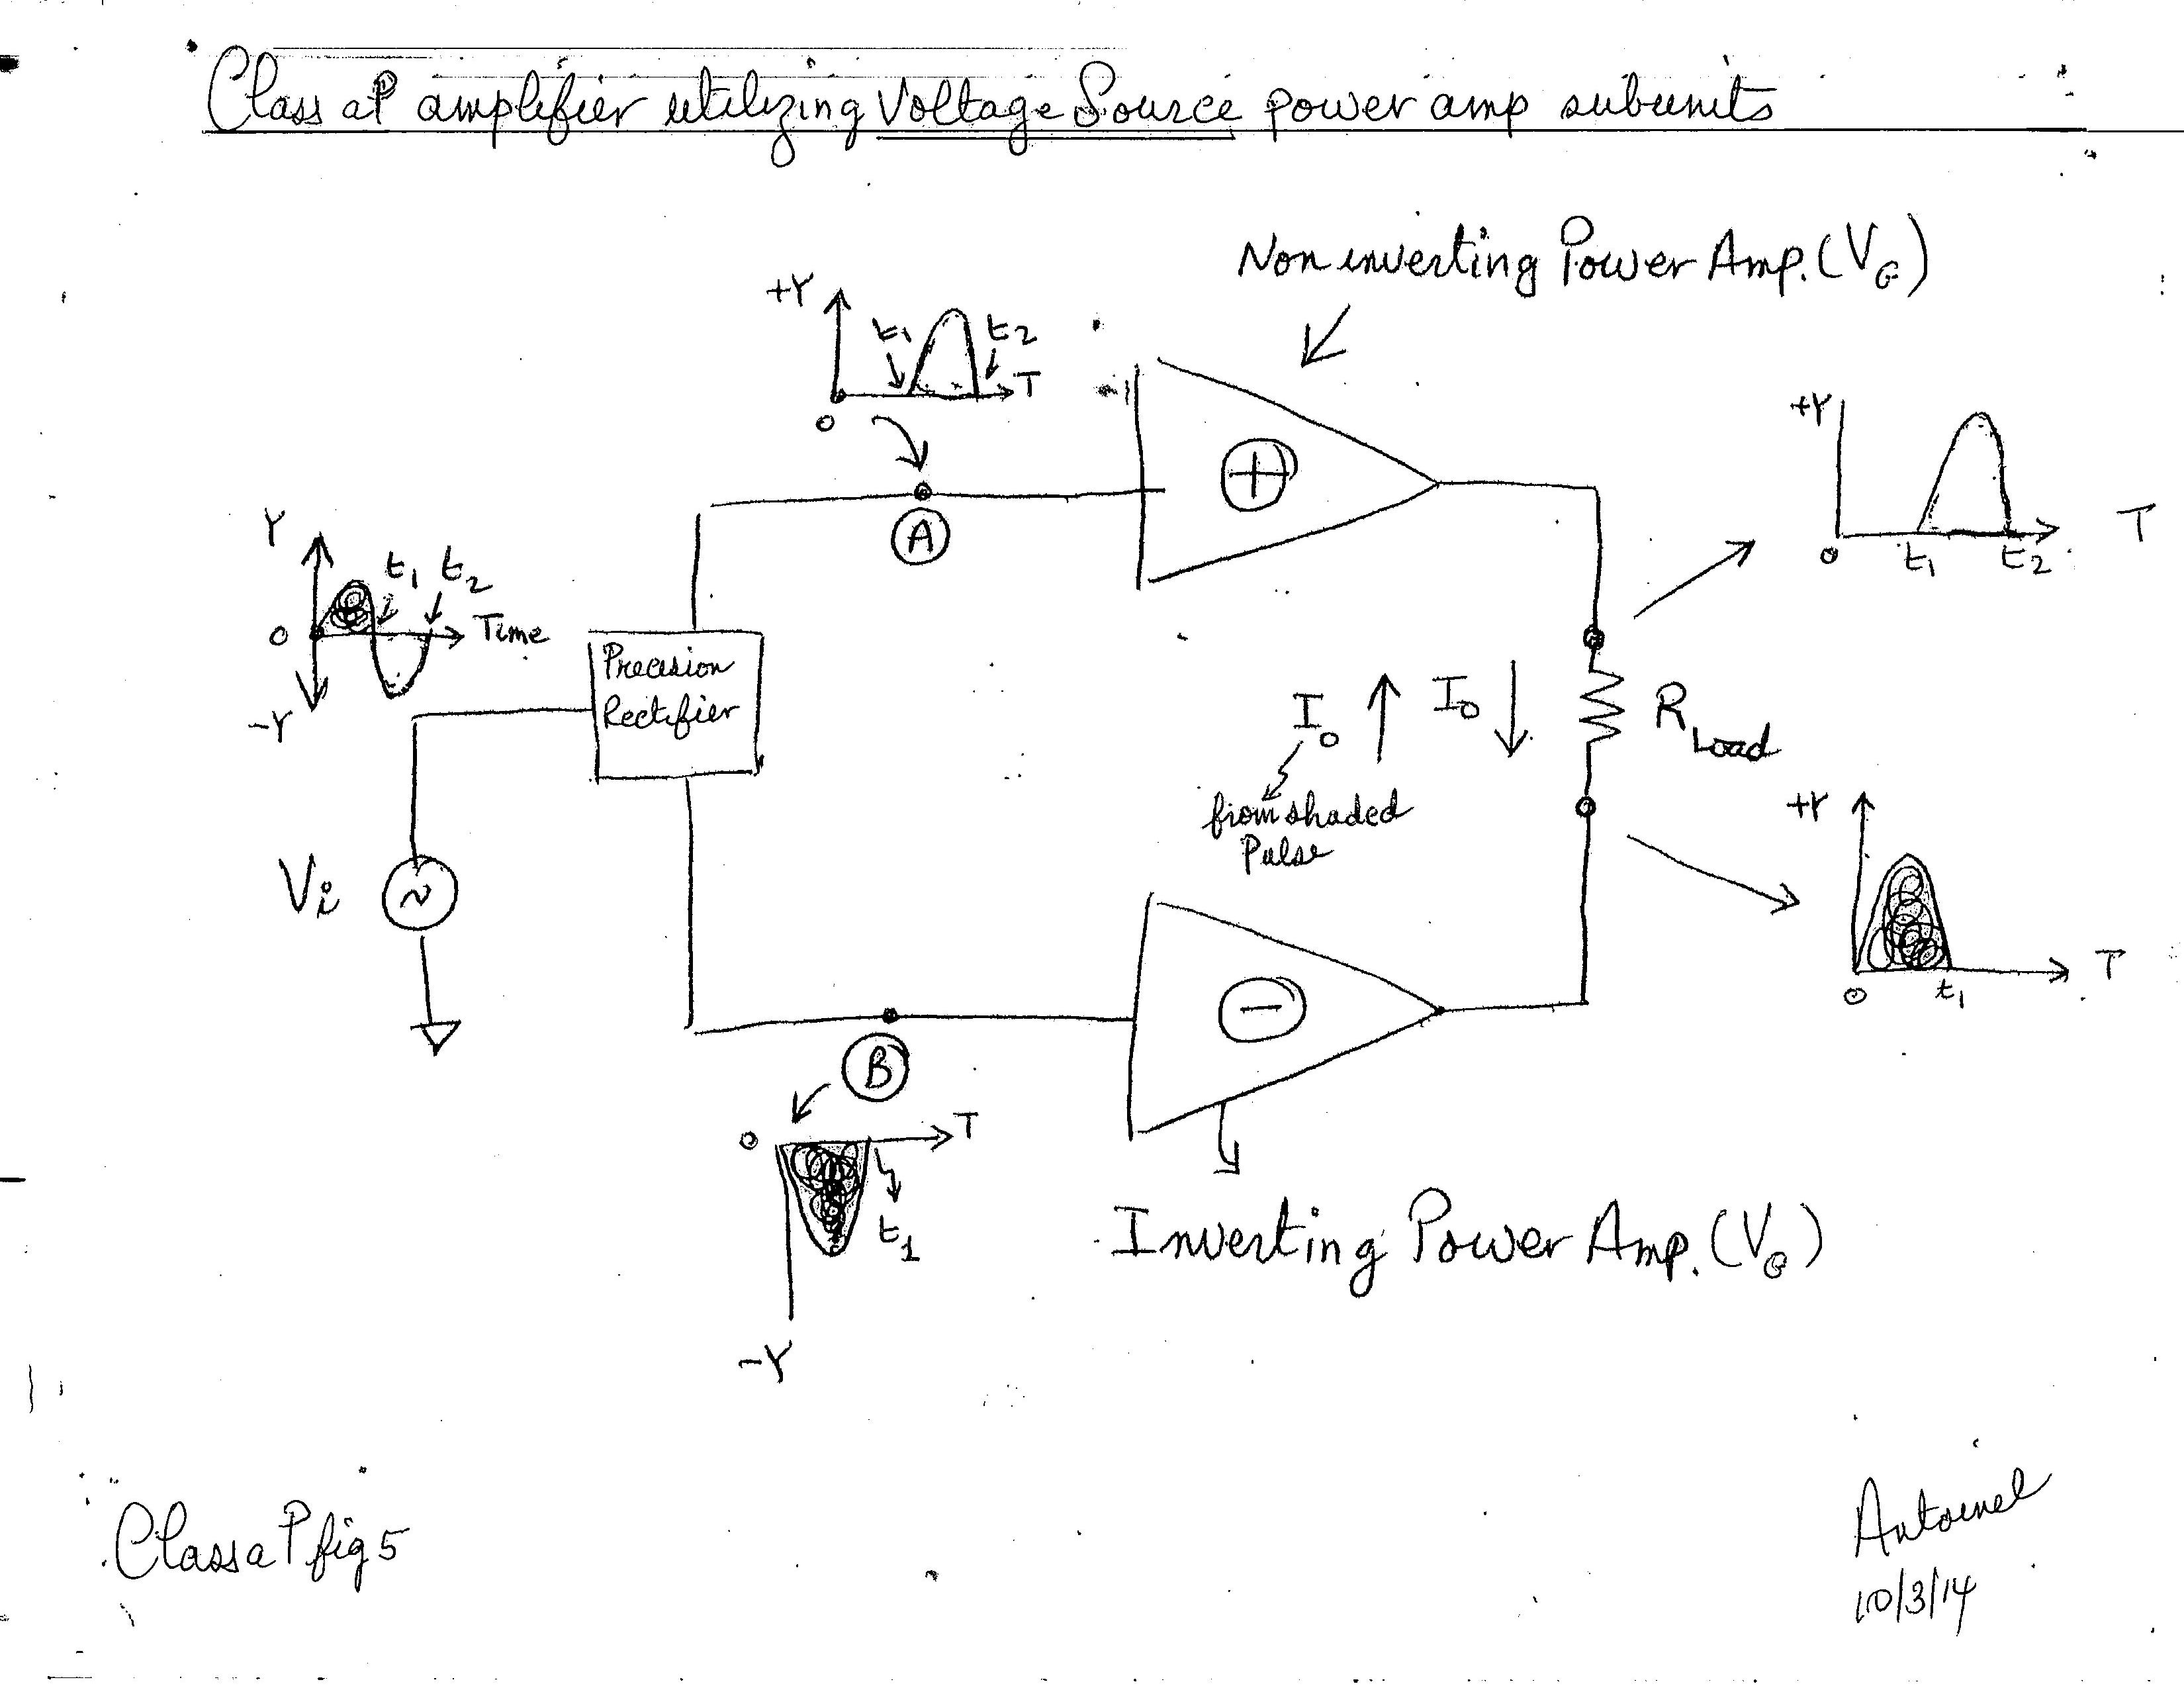 Class aP amplifier utilizing Voltage Source power amp subunits
Non inverting Power Amp. (VG)
+Y
t1
t2
T
0
A
+
+Y
0
t1
t2
T
Y
t1
t2
0
Time
-Y
Precision
Rectifier
Vi
~
Io
Io
R Load
from shaded
Pulse
+Y
0
t1
T
B
-
0
T
t1
-Y
Inverting Power Amp. (VG)
Class aP fig 5
10/3/14